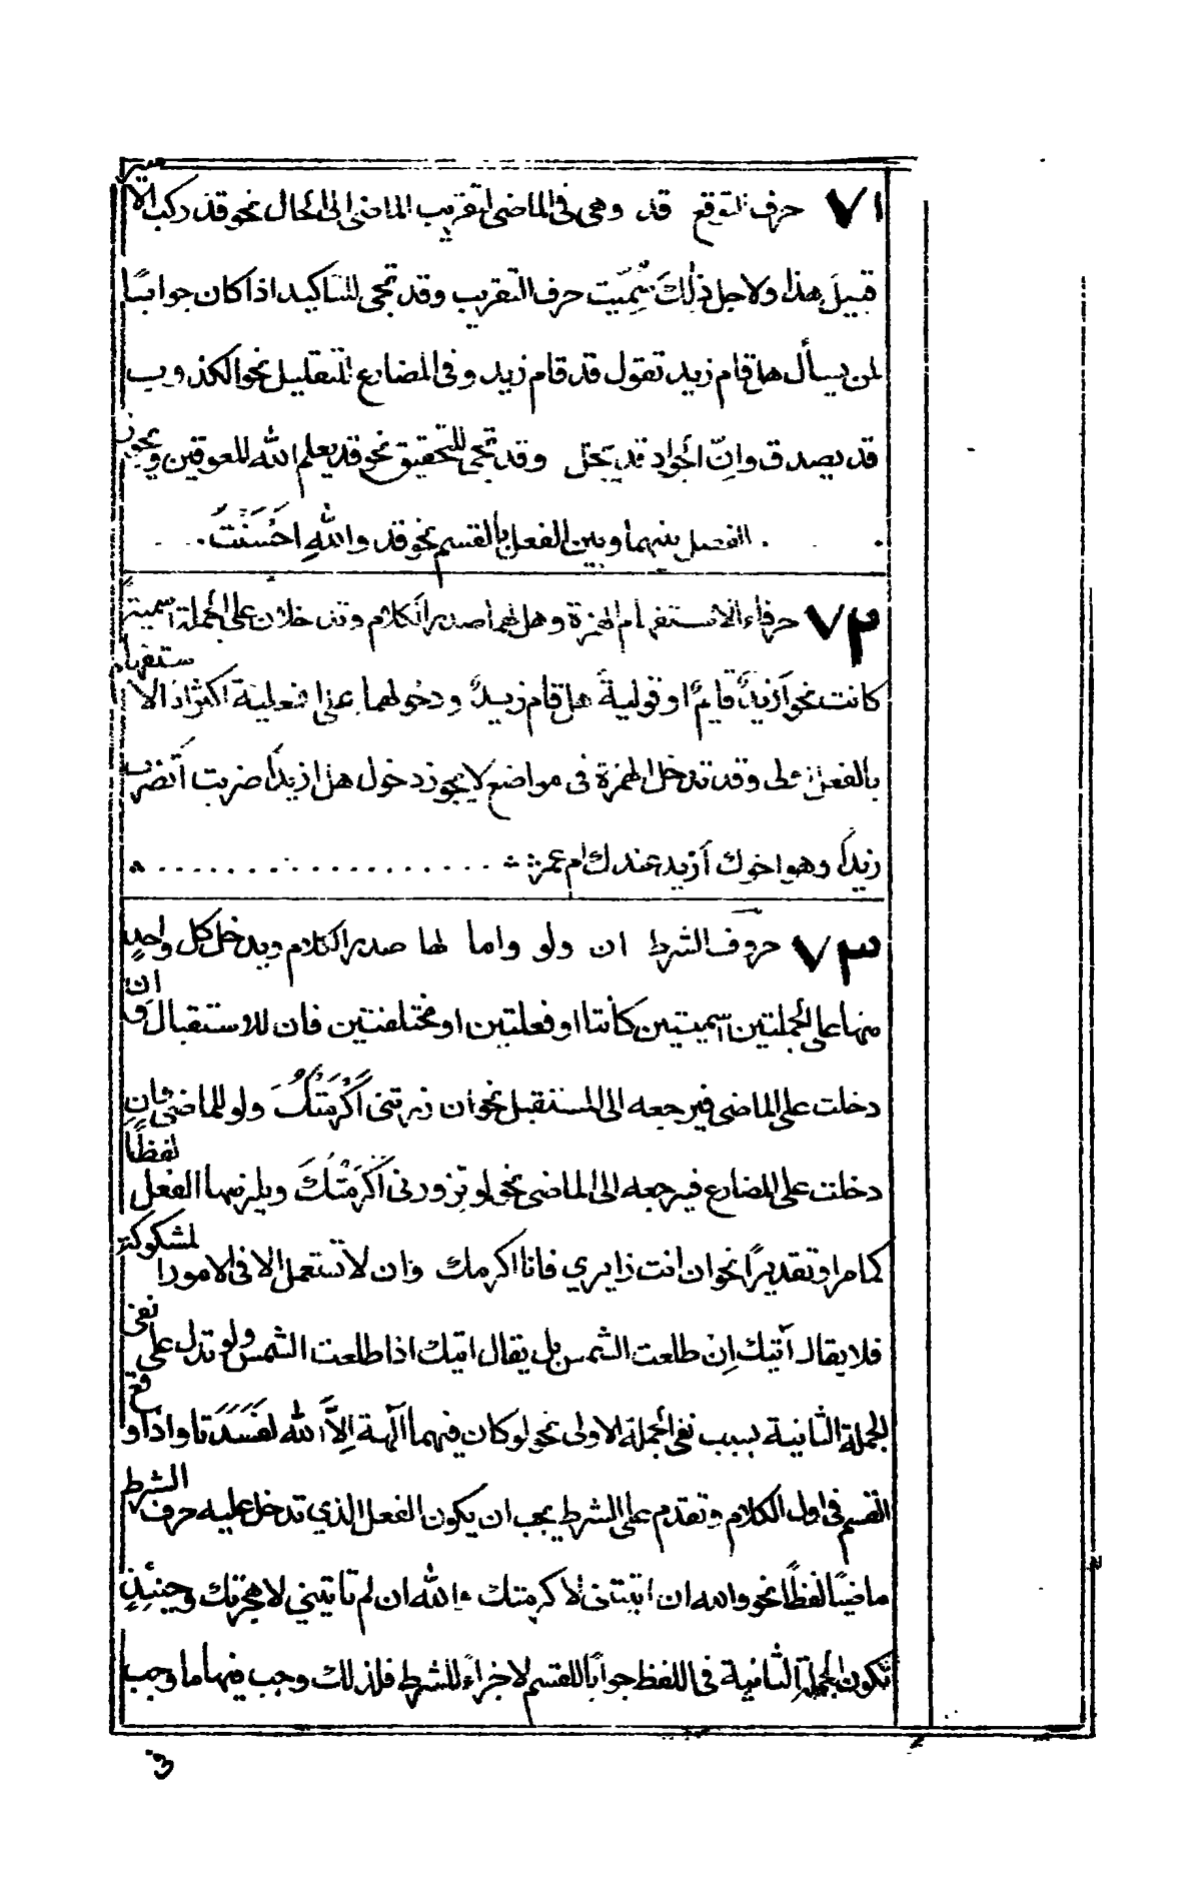 ٧١ حرف التوقع قد وهى فى الماضى لتقريب الماضى الى الحال نحو قد ركب الامير
قبيل هذا ولاجل ذٰلك سُمِّيت حرف التقريب وقد تجى للتاكيد اذا كان جوابًا
لمن يسأل هل قام زيد تقول قد قام زيد وفى المضارع للتقليل نحو الكذوب
قد يصدق وانّ الجواد قد يبخل وقد تجى للتحقيق نحو قد يعلم الله المعوقين ويجوز
الفصل بينهما وبين الفعل بالقسم نحو قد واللهِ احْسَنْتَ
٧٢ حرفاء الاستفهام الهمزة وهل لهما صدر الكلام وتدخلان على الجملة اسميةً
كانت نحو أزيدٌ قايمٌ او فعليةً هل قام زيدٌ ودخولهما على الفعلية اكثر اذ الاستفهام
بالفعل اولى وقد تدخل الهمزة فى مواضع لا يجوز دخول هل ازيدًا ضربت أتضرب
زيدًا وهو اخوك أزيد عندك ام عمرو
٧٣ حروف الشرط ان ولو واما لها صدر الكلام ويدخل كل واحدٍ
منها على الجملتين اسميتين كانتا او فعلتين او مختلفتين فان للاستقبال وَ ان
دخلت على الماضى فيرجعه الى المستقبل نحو ان زرتنى أَكْرَمْتُكَ ولو للماضى وَانِ
دخلت على المضارع فيرجعه الى الماضى نحو لو تزورنى أَكْرَمْتُكَ ويلزمها الفعل لفظًا
كما مر او تقديرًا نحو ان انت زايرى فانا اكرمك وان لا تستعمل الا فى الامور المشكوكة
فلا يقال آتيك اِن طلعت الشمس بل يقال اتيك اذا طلعت الشمس ولو تدل على نفى
الجملة الثانية بسبب نفى الجملة الاولى نحو لو كان فيهما آلهة اِلاَّ الله لَفَسَدَتَا واذا وقع
القسم فى اول الكلام وتقدم على الشرط يجب ان يكون الفعل الذى تدخل عليه حرف الشرط
ماضيًا لفظًا نحو والله ان اتيتنى لاكرمتك والله ان لم تاتينى لاهجرتك وحينئِذٍ
تكون الجملة الثانية فى اللفظ جوابًا للقسم لا جزاءً للشرط فلذلك وجب فيها ما وجب